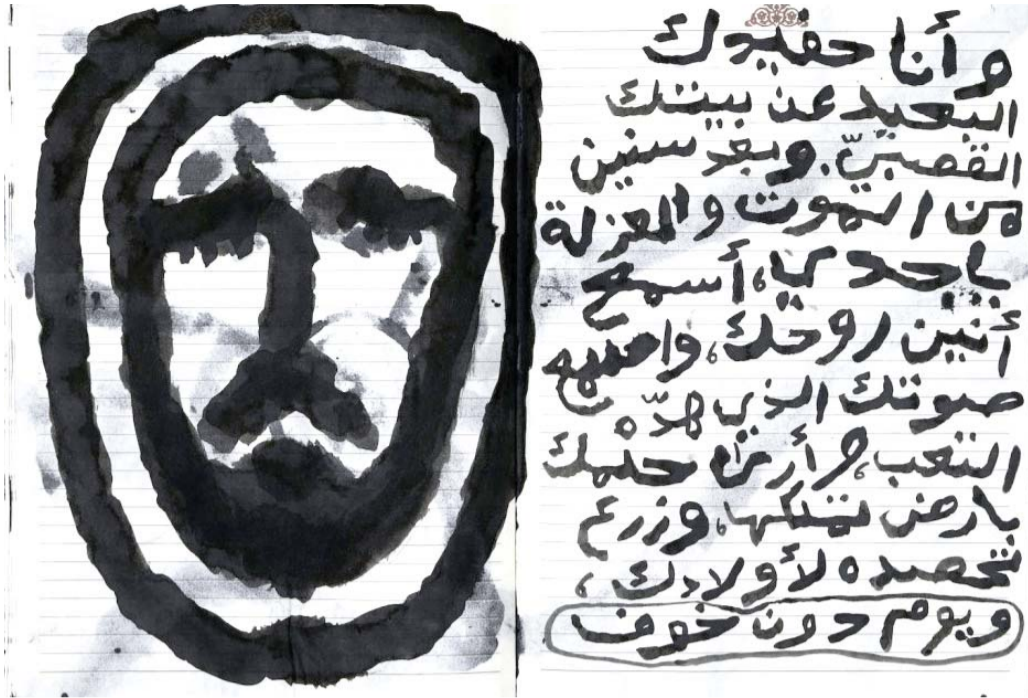 وأنا حفيدك
البعيد عن بيتك
القصبيّ. وبعد سنين
من الموت والعزلة
يا جدي، أسمع
أنين روحك، واسمع
صوتك الذي هدّه
التعب، وأرى حلمك
بأرض تملكها، وزرع
تحصده لأولادك،
ويوم دون خوف